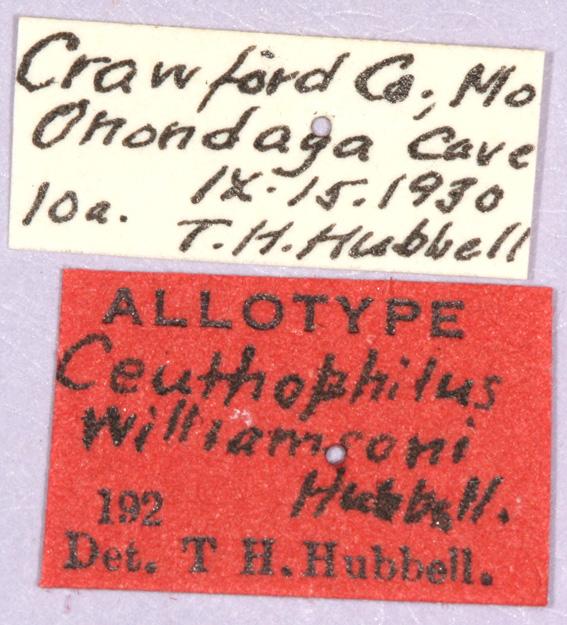 Crawford Co., Mo
Onondaga Cave
IX.15.1930
10a. T.H.Hubbell
ALLOTYPE
Ceuthophilus
williamsoni
Hubbell.
192
Det. T H. Hubbell.